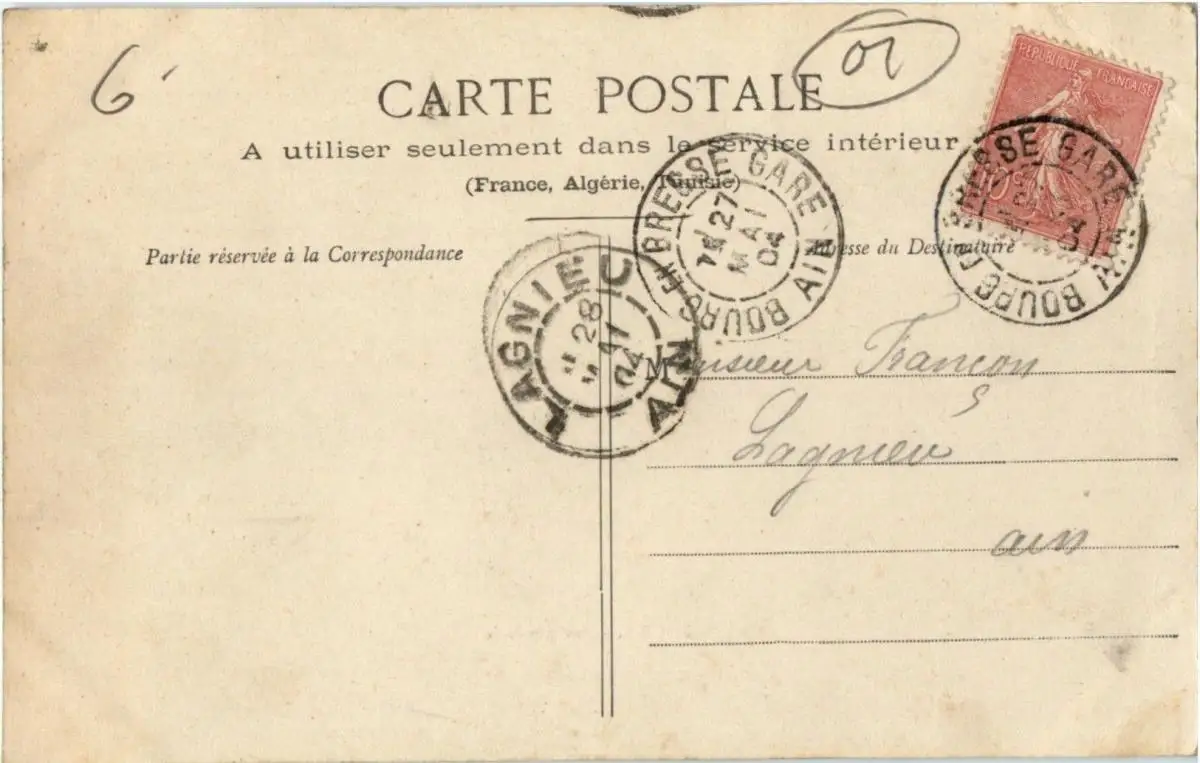 6
01
CARTE POSTALE
A utiliser seulement dans le service intérieur
(France, Algérie, Tunisie)
RÉPUBLIQUE FRANÇAISE
10
BOURG EN BRESSE GARE AIN
27
MAI
04
BOURG EN BRESSE GARE AIN
Partie réservée à la Correspondance
Adresse du Destinataire
LAGNIEU AIN
28
MAI
04
Monsieur Françon
Lagnieu
ain